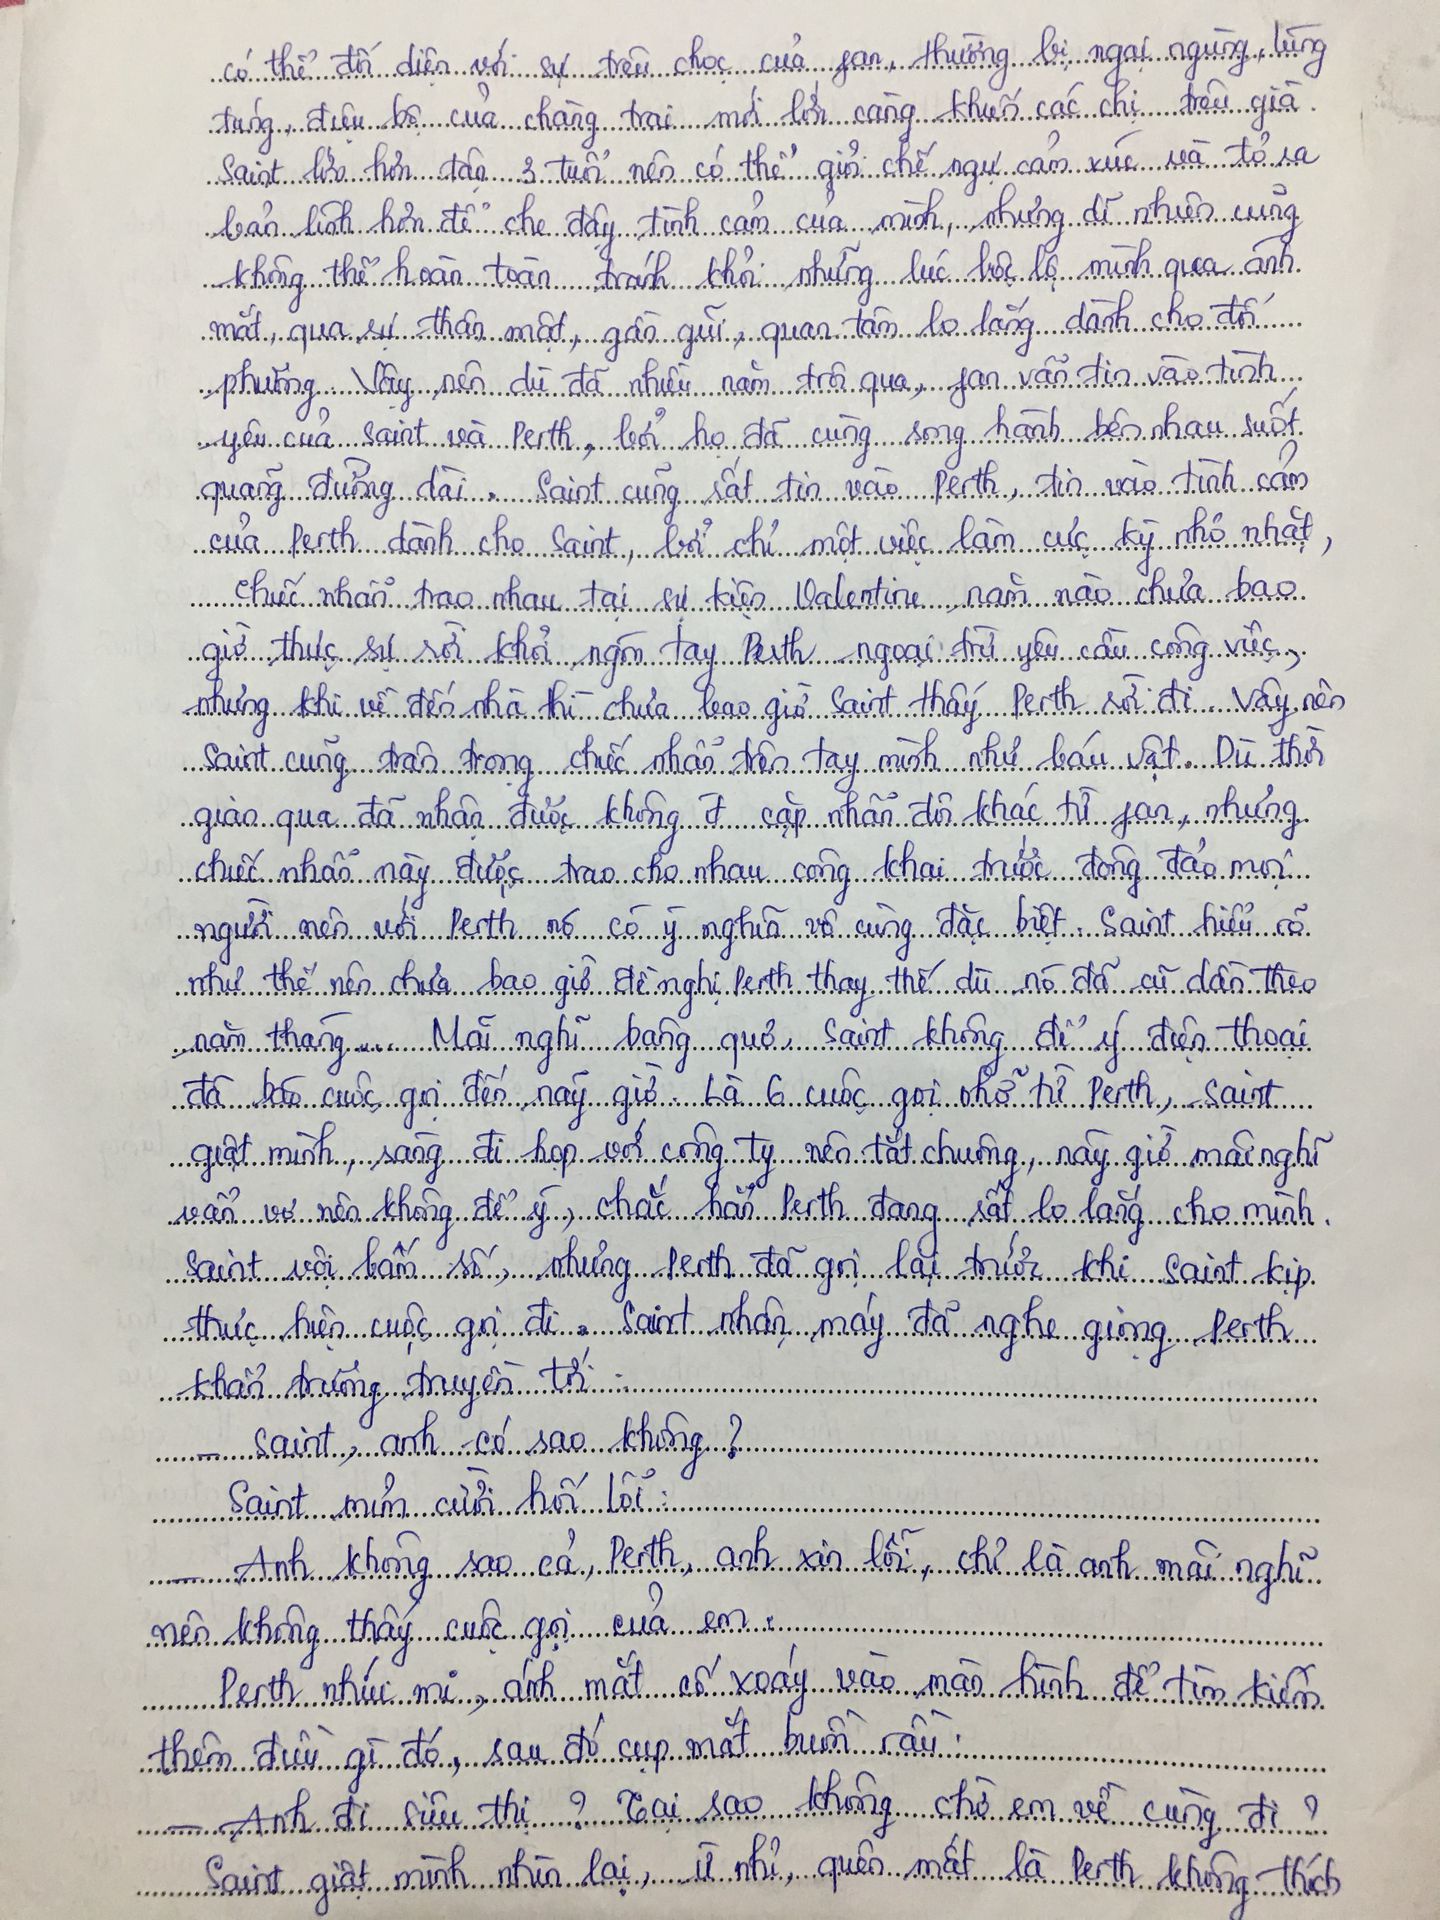 có thể đối diện với sự trêu chọc của Jan, thường bị ngại ngùng, lúng
túng, điệu bộ của chàng trai mới lớn càng khiến các chị trêu già.
Saint lớn hơn tận 3 tuổi nên có thể giỏi chế ngự cảm xúc và tỏ ra
bản lĩnh hơn để che đậy tình cảm của mình, nhưng dĩ nhiên cũng
không thể hoàn toàn tránh khỏi những lúc bộc lộ mình qua ánh
mắt, qua sự thân mật, gần gũi, quan tâm lo lắng dành cho đối
phương. Vậy nên dù đã nhiều năm trôi qua, Jan vẫn tin vào tình
yêu của Saint và Perth, bởi họ đã cùng song hành bên nhau suốt
quãng đường dài. Saint cũng rất tin vào Perth, tin vào tình cảm
của Perth dành cho Saint, bởi chỉ một việc làm cực kỳ nhỏ nhặt,
chiếc nhẫn trao nhau tại sự kiện Valentine năm nào chưa bao
giờ thực sự rời khỏi ngón tay Perth ngoại trừ yêu cầu công việc,
nhưng khi về đến nhà thì chưa bao giờ Saint thấy Perth rời đi. Vậy nên
Saint cũng trân trọng chiếc nhẫn trên tay mình như báu vật. Dù thời
gian qua đã nhận được không ít cặp nhẫn đôi khác từ Jan, nhưng
chiếc nhẫn này được trao cho nhau công khai trước đông đảo mọi
người nên với Perth nó có ý nghĩa vô cùng đặc biệt. Saint hiểu rõ
như thế nên chưa bao giờ đề nghị Perth thay thế dù nó đã cũ dần theo
năm tháng... Mải nghĩ bâng quơ, Saint không để ý điện thoại
đã báo cuộc gọi đến nãy giờ. Là 6 cuộc gọi nhỡ từ Perth, Saint
giật mình, sáng đi họp với công ty nên tắt chuông, nãy giờ mải nghĩ
vẩn vơ nên không để ý, chắc hẳn Perth đang rất lo lắng cho mình.
Saint vội bấm số, nhưng Perth đã gọi lại trước khi Saint kịp
thực hiện cuộc gọi đi. Saint nhận máy đã nghe giọng Perth
khẩn trương truyền tới:
– Saint, anh có sao không?
Saint mỉm cười hối lỗi:
– Anh không sao cả, Perth, anh xin lỗi, chỉ là anh mải nghĩ
nên không thấy cuộc gọi của em.
Perth nhíu mi, ánh mắt cố xoáy vào màn hình để tìm kiếm
thêm điều gì đó, sau đó cụp mắt buồn rầu:
– Anh đi siêu thị? Tại sao không chờ em về cùng đi?
Saint giật mình nhìn lại, ừ nhỉ, quên mất là Perth không thích